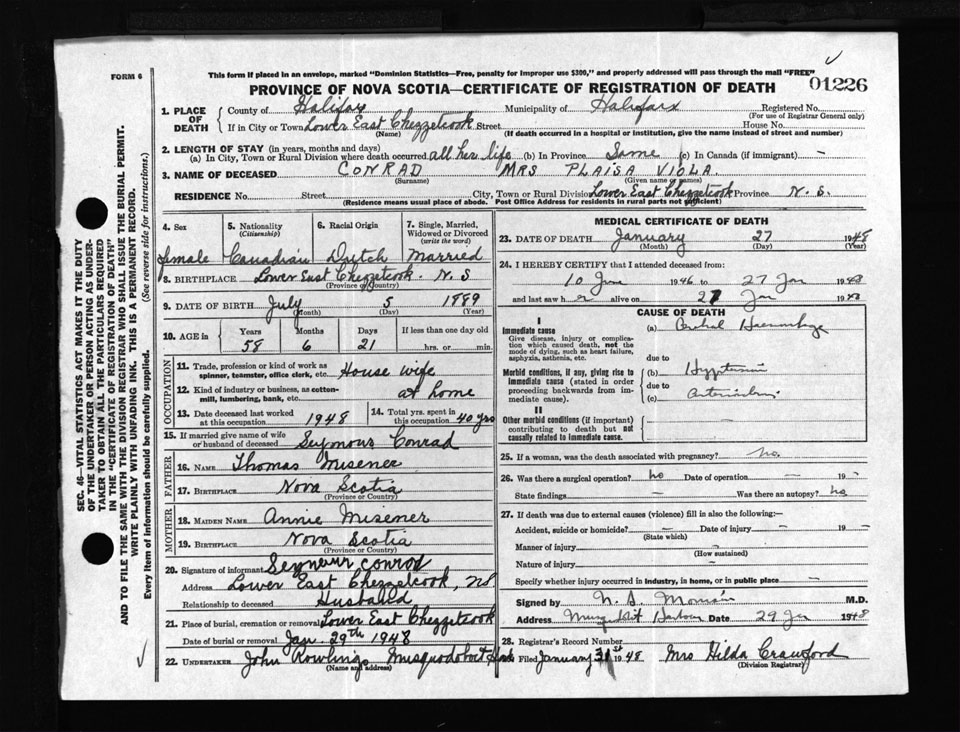 FORM 6
This form if placed in an envelope, marked "Dominion Statistics—Free, penalty for improper use $300," and properly addressed will pass through the mail "FREE"
PROVINCE OF NOVA SCOTIA—CERTIFICATE OF REGISTRATION OF DEATH
01226
1. PLACE OF DEATH
County of Halifax Municipality of Halifax Registered No.
(For use of Registrar General only)
If in City or Town Lower East Chezzetcook Street House No.
(Name) (If death occurred in a hospital or institution, give the name instead of street and number)
2. LENGTH OF STAY (in years, months and days)
(a) In City, Town or Rural Division where death occurred all her life (b) in Province Same (c) In Canada (if immigrant) —
3. NAME OF DECEASED CONRAD MRS PLAISA VIOLA.
(Surname) (Given name or names)
RESIDENCE No. Street City, Town or Rural Division Lower East Chezzetcook Province N. S.
(Residence means usual place of abode. Post Office Address for residents in rural parts not sufficient)
SEC. 46—VITAL STATISTICS ACT MAKES IT THE DUTY
OF THE UNDERTAKER OR PERSON ACTING AS UNDER-
TAKER TO OBTAIN ALL THE PARTICULARS REQUIRED
IN THE "CERTIFICATE OF REGISTRATION OF DEATH"
AND TO FILE THE SAME WITH THE DIVISION REGISTRAR WHO SHALL ISSUE THE BURIAL PERMIT.
WRITE PLAINLY WITH UNFADING INK. THIS IS A PERMANENT RECORD.
Every item of information should be carefully supplied. (See reverse side for instructions.)
4. Sex 5. Nationality (Citizenship) 6. Racial Origin 7. Single, Married, Widowed or Divorced (write the word)
female Canadian Dutch Married
8. BIRTHPLACE Lower East Chezzetcook. N. S
(Province or Country)
9. DATE OF BIRTH July 5 1889
(Month) (Day) (Year)
10. AGE in Years Months Days If less than one day old
58 6 21 hrs. or min.
OCCUPATION
11. Trade, profession or kind of work as spinner, teamster, office clerk, etc. House wife
12. Kind of industry or business, as cotton-mill, lumbering, bank, etc. at home
13. Date deceased last worked at this occupation 1948 14. Total yrs. spent in this occupation 40 yrs
15. If married give name of wife or husband of deceased Seymour Conrad
FATHER
16. NAME Thomas Misener
17. BIRTHPLACE Nova Scotia
(Province or Country)
MOTHER
18. MAIDEN NAME Annie Misener
19. BIRTHPLACE Nova Scotia
(Province or Country)
20. Signature of informant Seymour Conrod
Address Lower East Chezzetcook, NS
Relationship to deceased Husband
21. Place of burial, cremation or removal Lower East Chezzetcook
Date of burial or removal Jan. 29th 1948
22. UNDERTAKER John Rowlings Musquodoboit Harb
(Name and address)
MEDICAL CERTIFICATE OF DEATH
23. DATE OF DEATH January 27 1948
(Month) (Day) (Year)
24. I HEREBY CERTIFY that I attended deceased from:
10 June 1946 to 27 Jan 1948
and last saw her alive on 27 Jan 1948
CAUSE OF DEATH
I
Immediate cause
Give disease, injury or complication which caused death, not the mode of dying, such as heart failure, asphyxia, asthenia, etc.
(a) Cerebral Haemorrhage
due to
Morbid conditions, if any, giving rise to immediate cause (stated in order proceeding backwards from immediate cause).
(b) Hypertension
due to
(c)
II
Other morbid conditions (if important) contributing to death but not causally related to immediate cause.
25. If a woman, was the death associated with pregnancy? no.
26. Was there a surgical operation? no Date of operation — 19
State findings — Was there an autopsy? no
27. If death was due to external causes (violence) fill in also the following:—
Accident, suicide or homicide? — Date of injury — 19 —
(State which)
Manner of injury
(How sustained)
Nature of injury
Specify whether injury occurred in industry, in home, or in public place —
Signed by M.D.
Address Musquodoboit Harbour Date 29 Jan 1948
28. Registrar's Record Number
Filed January 31st 1948 Mrs Hilda Crawford
(Division Registrar)